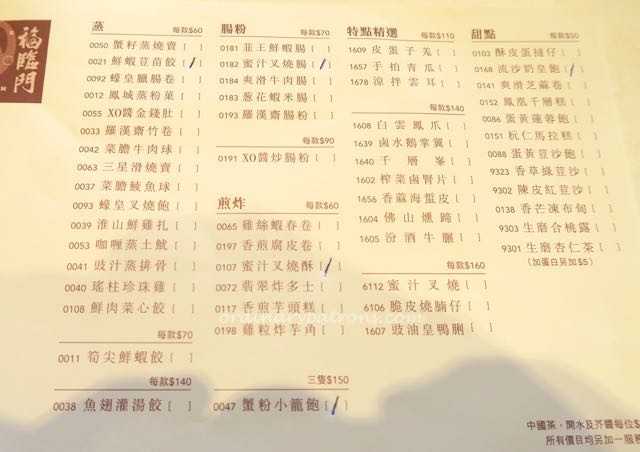 福臨門
蒸 每款$60
0050 蟹籽蒸燒賣 [ ]
0021 鮮蝦荳苗餃 [ / ]
0092 蠔皇腸卷 [ ]
0012 鳳城蒸粉菓 [ ]
0055 XO醬金錢肚 [ ]
0033 羅漢齋竹卷 [ ]
0042 菜膽牛肉球 [ ]
0063 三星滑燒賣 [ ]
0037 菜膽鯪魚球 [ ]
0093 蠔皇叉燒飽 [ ]
0039 淮山鮮雞扎 [ ]
0053 咖喱蒸土魷 [ ]
0041 豉汁蒸排骨 [ ]
0040 瑤柱珍珠雞 [ ]
0108 鮮肉菜心餃 [ ]
每款$70
0011 筍尖鮮蝦餃 [ ]
每款$140
0038 魚翅灌湯餃 [ ]
腸粉 每款$70
0181 韮王鮮蝦腸 [ ]
0182 蜜汁叉燒腸 [ / ]
0184 爽滑牛肉腸 [ ]
0183 葱花蝦米腸 [ ]
0193 羅漢齋腸粉 [ ]
每款$90
0191 XO醬炒腸粉 [ ]
煎炸 每款$60
0065 雞絲蝦春卷 [ ]
0197 香煎腐皮卷 [ ]
0107 蜜汁叉燒酥 [ / ]
0072 翡翠炸多士 [ ]
0117 香煎芋頭糕 [ ]
0198 雞粒炸芋角 [ ]
三隻$150
0047 蟹粉小籠飽 [ / ]
特點精選 每款$110
1609 皮蛋子羗 [ ]
1657 手拍青瓜 [ ]
1678 涼拌雲耳 [ ]
每款$140
1608 白雲鳳爪 [ ]
1639 鹵水鵝掌翼 [ ]
1640 千層峯 [ ]
1602 榨菜鹵腎片 [ ]
1656 香蔴海蜇皮 [ ]
1604 佛山燻蹄 [ ]
1605 汾酒牛𦟌 [ ]
每款$160
6112 蜜汁叉燒 [ ]
6106 脆皮燒腩仔 [ ]
1607 豉油皇鴨脷 [ ]
甜點 每款$60
0103 酥皮蛋撻仔 [ ]
0168 流沙奶皇飽 [ / ]
0141 爽滑芝麻卷 [ ]
0152 鳳凰千層糕 [ ]
0086 蛋黃蓮蓉飽 [ ]
0151 杬仁馬拉糕 [ ]
0088 蛋黃荳沙飽 [ ]
9323 香草綠荳沙 [ ]
9302 陳皮紅荳沙 [ ]
0138 香芒凍布甸 [ ]
9303 生磨合桃露 [ ]
9301 生磨杏仁茶 [ ]
(加蛋白另加$5)
ordinarypatrons.com
中國茶，開水及芥醬每位$
所有價目均另加一服務